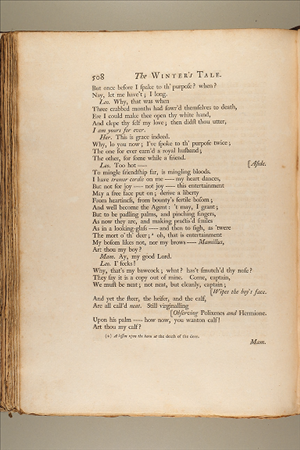 508 The WINTER's TALE.
But once before I ſpake to th' purpoſe? when?
Nay, let me have't; I long.
Leo. Why, that was when
Three crabbed months had ſowr'd themſelves to death,
Ere I could make thee open thy white hand,
And clepe thy ſelf my love; then didſt thou utter,
I am yours for ever.
Her. This is grace indeed.
Why, lo you now; I've ſpoke to th' purpoſe twice;
The one for ever earn'd a royal husband;
The other, for ſome while a friend.
Leo. Too hot —— [Aſide.
To mingle friendſhip far, is mingling bloods.
I have tremor cordis on me —— my heart dances,
But not for joy —— not joy —— this entertainment
May a free face put on; derive a liberty
From heartineſs, from bounty's fertile boſom,
And well become the Agent: 't may, I grant;
But to be padling palms, and pinching fingers,
As now they are, and making practis'd ſmiles
As in a looking-glaſs —— and then to ſigh, as 'twere
The mort o' th' deer; oh, that is entertainment
My boſom likes not, nor my brows —— Mamillus,
Art thou my boy?
Mam. Ay, my good Lord.
Leo. I' fecks!
Why, that's my bawcock; what? has't ſmutch'd thy noſe?
They ſay it is a copy out of mine. Come, captain,
We muſt be neat; not neat, but cleanly, captain;
[Wipes the boy's face.
And yet the ſteer, the heifer, and the calf,
Are all call'd neat. Still virginalling
[Obſerving Polixenes and Hermione.
Upon his palm —— how now, you wanton calf!
Art thou my calf?
(a) A leſſon upon the horn at the death of the deer.
Mam.